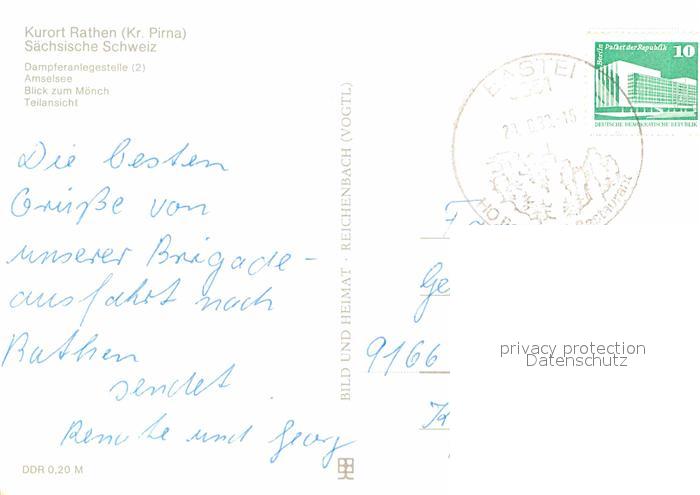 Kurort Rathen (Kr. Pirna)
Sächsische Schweiz
Dampferanlegestelle (2)
Amselsee
Blick zum Mönch
Teilansicht
Die besten
Grüße von
unserer Brigade-
ausfahrt nach
Rathen
sendet
Renate und Georg
DDR 0,20 M
BILD UND HEIMAT · REICHENBACH (VOGTL)
BASTEI
Berlin Palast der Republik 10
DEUTSCHE DEMOKRATISCHE REPUBLIK
Ge
9166
privacy protection
Datenschutz